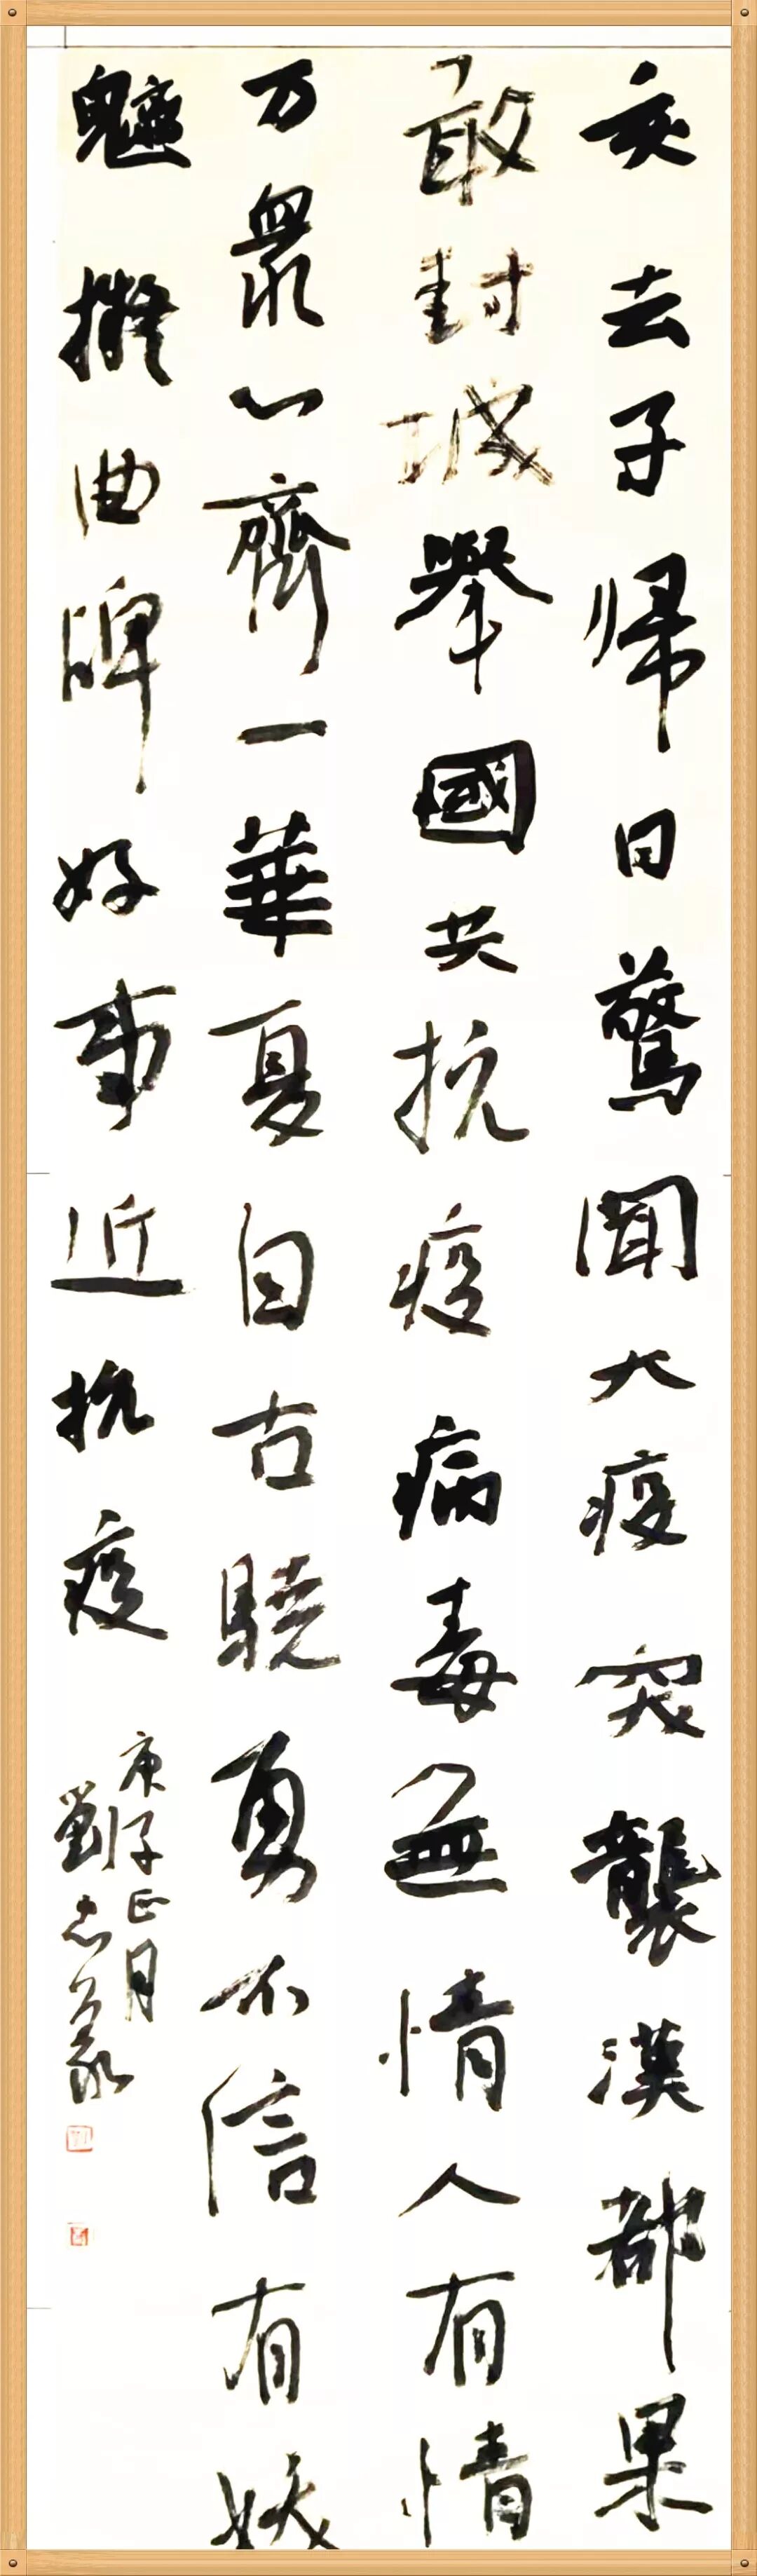 亥去子歸日驚聞大疫突襲漢都果
敢封城舉國共抗疫病毒無情人有情
万衆心齊一華夏自古驍勇不信有妖
魑擬曲牌好事近抗疫
庚子正月
劉志義